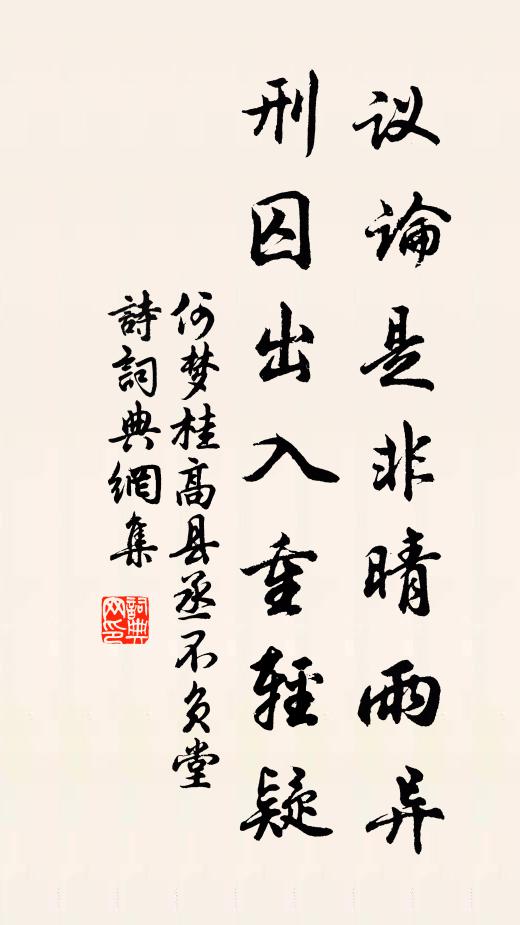 议论是非晴雨异
刑囚出入重輕疑
何梦桂高县丞不负堂
詩詞典網集
詞典网印